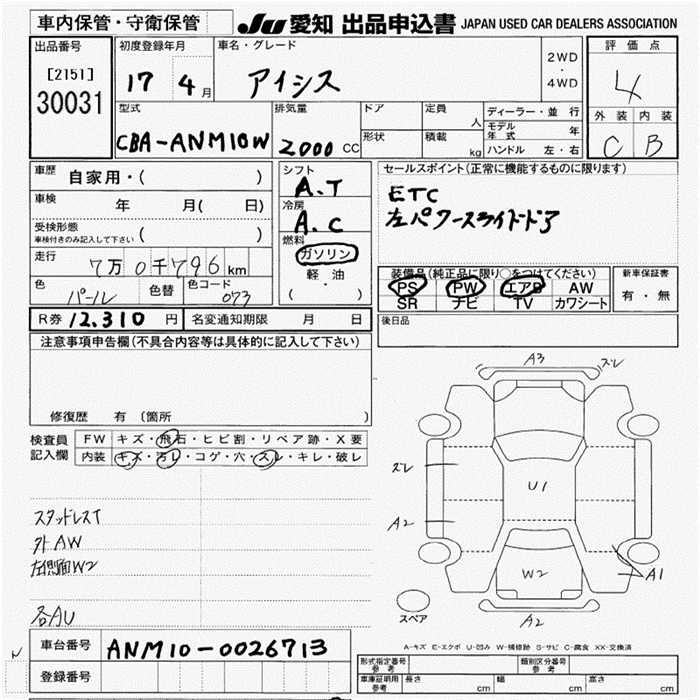 車内保管・守衛保管
JU 愛知 出品申込書 JAPAN USED CAR DEALERS ASSOCIATION
出品番号
[2151]
30031
初度登録年月
17 4月
車名・グレード
アイシス
2WD
・
4WD
評価点
4
外装 内装
C B
型式
CBA-ANM10W
排気量
2000 CC
ドア
形状
定員
人
積載
kg
ディーラー・並行
モデル年式 年
ハンドル 左・右
車歴 自家用・( )
車検 年 月( 日)
受検形態
車検付きのみ記入して下さい ( )
走行 7万0千796km
色 パール 色替 色コード 073
シフト
A.T
冷房
A.C
燃料
ガソリン
軽油
( ・ )
セールスポイント(正常に機能するものに限ります)
ETC
左パワースライドドア
装備品(純正品に限り○をつけてください)
PS PW エアB AW
SR ナビ TV カワシート
新車保証書
有・無
R券 12.310 円 名変通知期限 月 日
後日品
注意事項申告欄(不具合内容等は具体的に記入して下さい)
修復歴 有 (箇所 )
検査員
記入欄
FW キズ・飛石・ヒビ割・リペア跡・X要
内装 キズ・汚レ・コゲ・穴・スレ・キレ・破レ
スタッドレスT
外AW
左側面W2
各AU
A3 ズレ
ズレ
U1
A2
W2
A1
A2
スペア
A-キズ E-エクボ U-凹み W-補修跡 S-サビ C-腐食 XX-交換済
車台番号 ANM10-0026713
登録番号
形式指定番号
参考
類別区分番号
参考
車庫証明用
参考
長さ cm 幅 cm 高さ cm